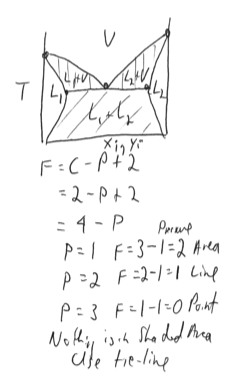 V
T
L₁
L₁+V
L₂+V
L₂
L₁+L₂
xᵢ, yᵢ
F = C - P + 2
= 2 - P + 2
= 4 - P
P=1 F=3-1=2 Area
P=2 F=2-1=1 Line
P=3 F=1-1=0 Point
Nothing is in Shaded Area
Use tie-line